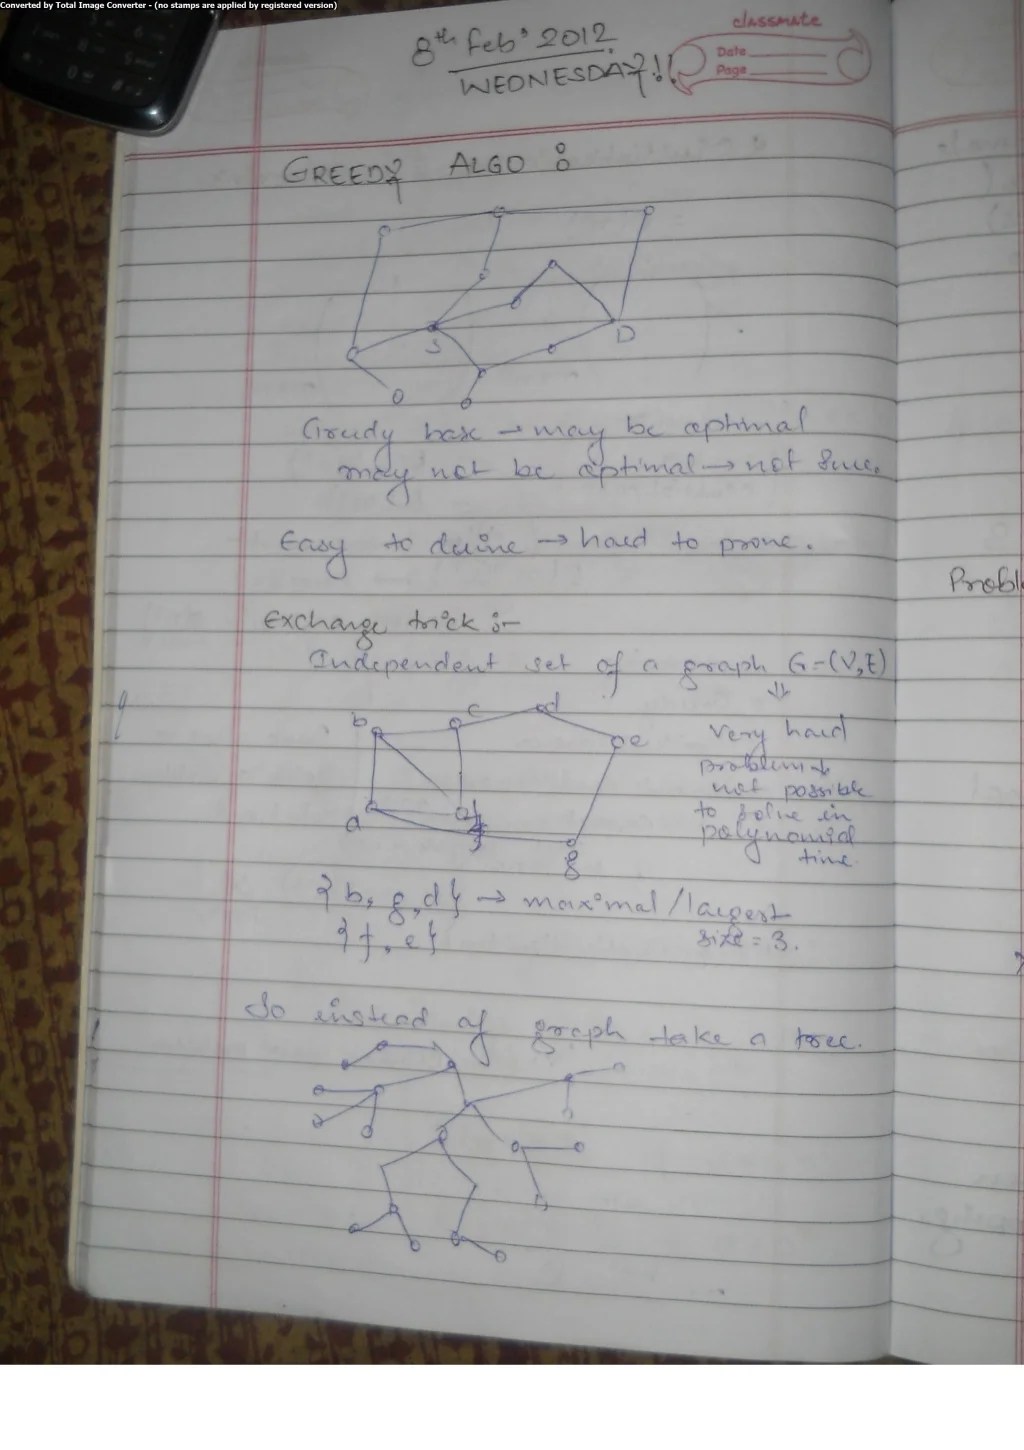 Converted by Total Image Converter - (no stamps are applied by registered version)
classmate
Date
Page
8th Feb' 2012.
WEDNESDAY!!
GREEDY ALGO :
S
D
Greedy base → may be optimal
may not be optimal → not sure.
Easy to → hard to prove.
Probl
Exchange trick :-
Independent set of a graph G=(V,E)
⇓
very hard
problem →
not possible
to solve in
polynomial
time.
b
c
d
e
a
f
g
{b, g, d} → maximal/largest
size = 3.
{f, e}
So instead of graph take a tree.